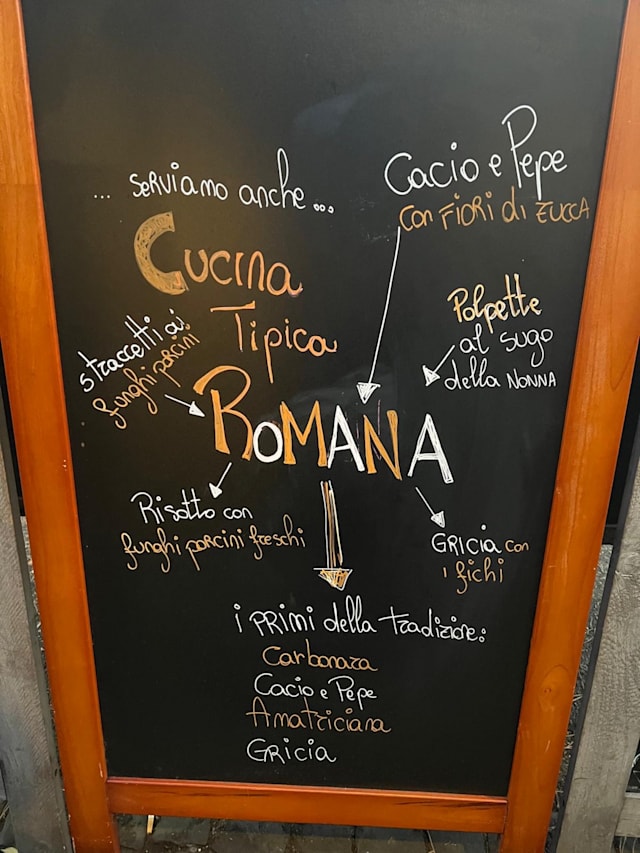 ... serviamo anche...
Cucina
Tipica
ROMANA
Cacio e Pepe
con FIORI di ZUCCA
straccetti ai
funghi porcini
Polpette
al sugo
della NONNA
Risotto con
funghi porcini freschi
GRICIA con
i fichi
i PRIMI della tradizione:
Carbonara
Cacio e Pepe
Amatriciana
GRICIA